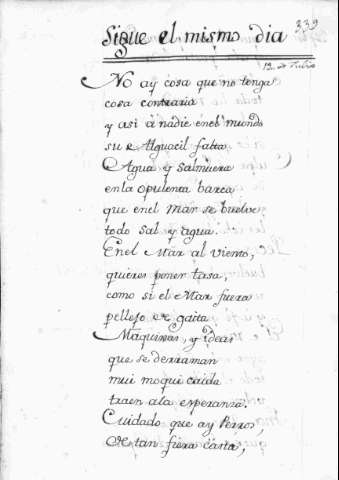 339
Sigue el mismo dia
12. de Julio
No ay cosa que no tenga
cosa contraria
y asi à nadie enel mundo
su Alguacil falta
Agua y salmuera
enla opulenta barca
que enel Mar se buelve
todo sal y agua.
Enel Mar al viento,
quieren poner tasa,
como si el Mar fuera
pellejo de gaita
Maquinas, y ideas
que se derraman
mui moqui caida
traen ala esperanza.
Cuidado que ay Perros,
de tan fiera casta,